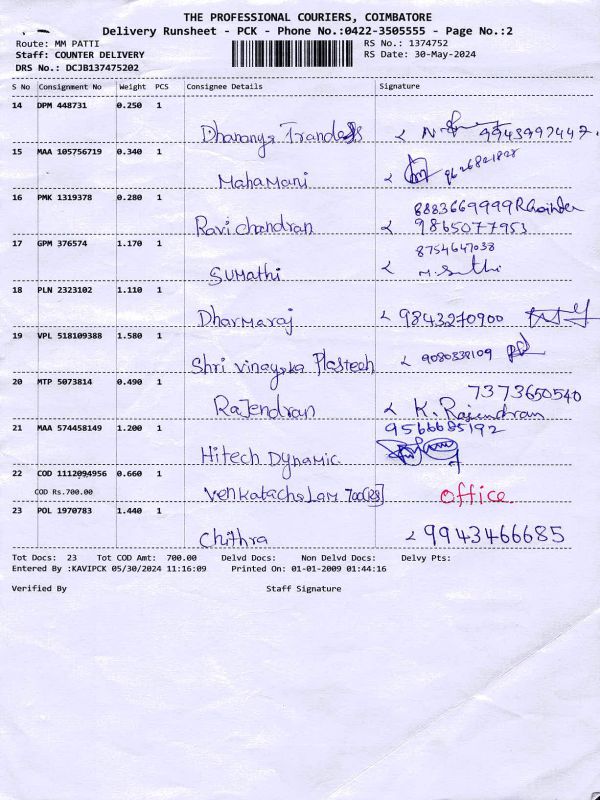 THE PROFESSIONAL COURIERS, COIMBATORE
Delivery Runsheet - PCK - Phone No.:0422-3505555 - Page No.:2
Route: MM PATTI RS No.: 1374752
Staff: COUNTER DELIVERY RS Date: 30-May-2024
DRS No.: DCJB137475202
S No Consignment No Weight PCS Consignee Details Signature
14 DPM 448731 0.250 1
Dhananya Tranders 9943997447.
15 MAA 105756719 0.340 1
Mahamani 9626821828
16 PMK 1319378 0.280 1
8883669999
Ravichandran 9865077953
17 GPM 376574 1.170 1
8754647038
Sumathi
18 PLN 2323102 1.110 1
Dharmaraj 9843270900
19 VPL 518109388 1.580 1
Shri Vinayaka Plastech 9080838109
20 MTP 5073814 0.490 1
7373650540
Rajendran K. Rajendran
21 MAA 574458149 1.200 1
9566685192
Hitech Dynamic
22 COD 1112094956 0.660 1
COD Rs.700.00 Venkatachalam office.
23 POL 1970783 1.440 1
Chithra 9943466685
Tot Docs: 23 Tot COD Amt: 700.00 Delvd Docs: Non Delvd Docs: Delvy Pts:
Entered By :KAVIPCK 05/30/2024 11:16:09 Printed On: 01-01-2009 01:44:16
Verified By Staff Signature